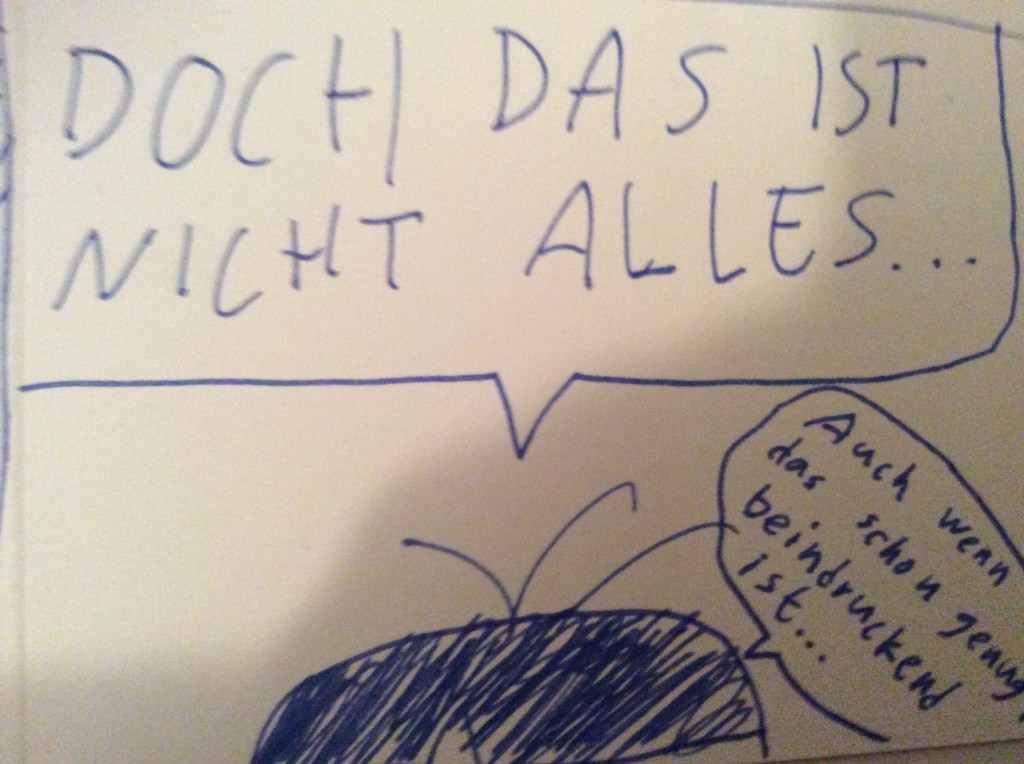 DOCH DAS IST
NICHT ALLES...
Auch wenn
das schon genug
beindruckend
ist...